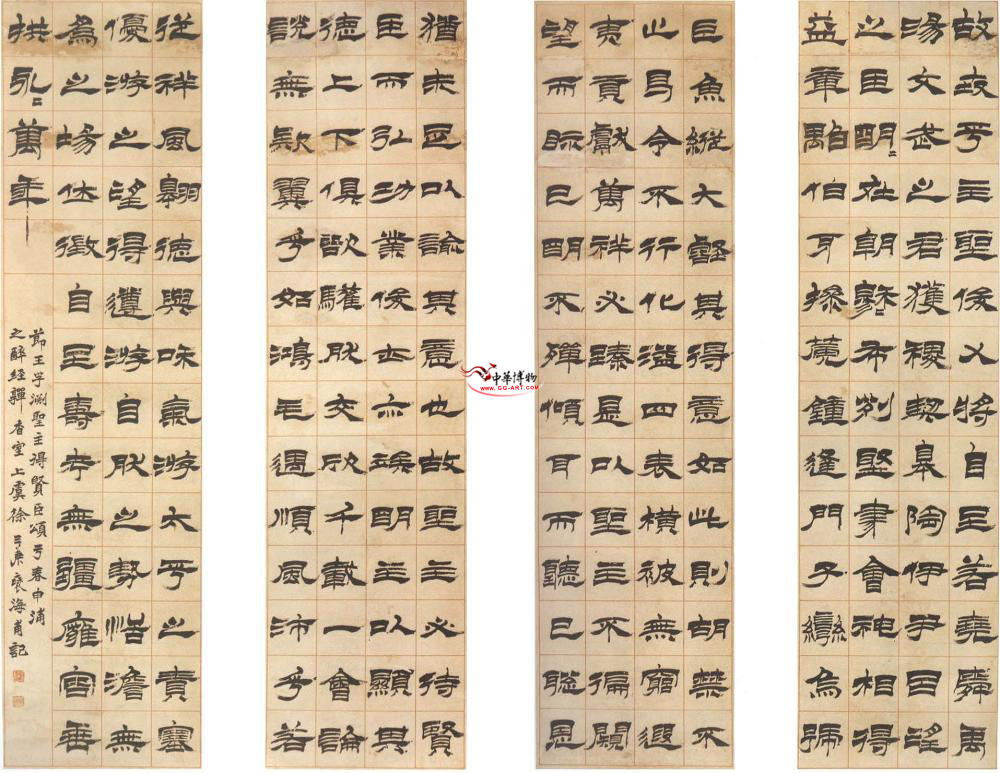 故世平主聖俊乂將自至若堯舜禹
湯文武之君獲稷契皋陶伊尹呂望
之臣明〻在朝穆〻布列聚精會神相得
益章雖伯牙操篪鐘逢門子彎烏號
猶未足以諭其意也故聖主必待賢
臣而弘功業俊士亦俟明主以顯其
德上下俱欲驩然交欣千載一會論
說無疑翼乎如鴻毛遇順風沛乎若
巨魚縱大壑其得意如此則胡禁不
止曷令不行化溢四表橫被無窮遐
夷貢獻萬祥必臻是以聖主不徧窺
望而視已明不殫傾耳而聽已聰恩
從祥風翱德與和氣游太平之責塞
優游之望得遵游自然之勢恬澹無
為之場休徵自至壽考無疆雍容垂
拱永〻萬年
節王子淵聖主得賢臣頌于春申浦
之醉經香室上虞徐三庚褎海甫記
中華博物
www.GG-ART.com